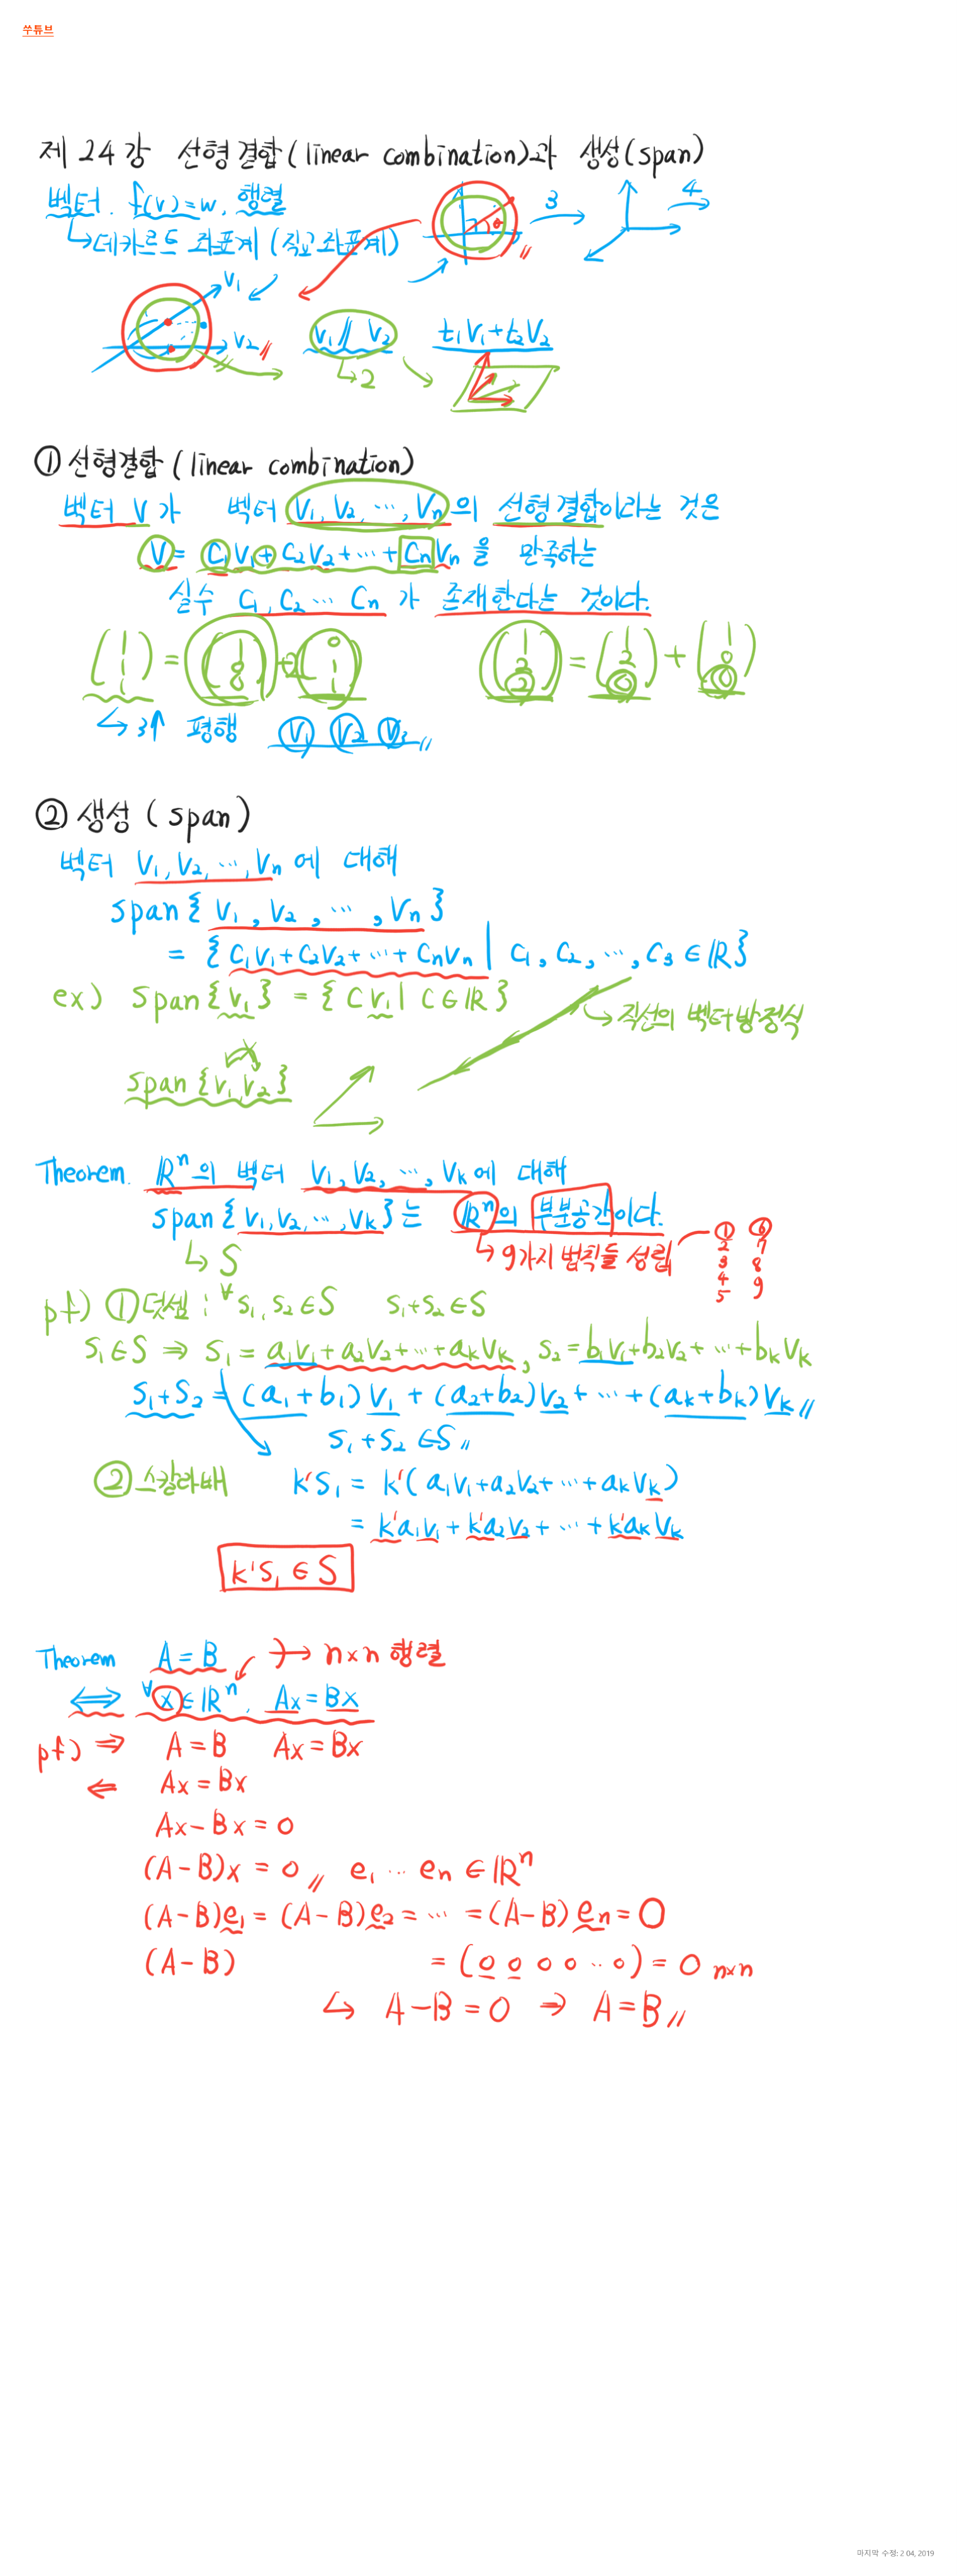 쑤튜브
제 24강 선형결합(linear combination)과 생성(span)
벡터. f(v)=w, 행렬
↳데카르트 좌표계 (직교좌표계)
3
4
θ
v₁
v₂
v₁ ∦ v₂
↳2
t₁v₁+t₂v₂
① 선형결합 (linear combination)
벡터 v가 벡터 v₁, v₂, ⋯, vₙ의 선형결합이라는 것은
v = c₁v₁+c₂v₂+⋯+cₙvₙ을 만족하는
실수 c₁, c₂ ⋯ cₙ가 존재한다는 것이다.
↳ 3↑ 평행 v₁ v₂ v₃
② 생성 (span)
벡터 v₁, v₂, ⋯, vₙ에 대해
span{ v₁, v₂, ⋯, vₙ}
= {c₁v₁+c₂v₂+⋯+cₙvₙ | c₁, c₂, ⋯, c₃ ∈ ℝ}
ex) span{v₁} = {cv₁ | c∈ℝ}
↳직선의 벡터방정식
span{v₁,v₂}
Theorem. ℝⁿ의 벡터 v₁, v₂, ⋯, vₖ에 대해
span{v₁,v₂,⋯,vₖ}는 ℝⁿ의 부분공간이다.
↳ S
↳ 9가지 법칙들 성립
① ⑥
2 7
3 8
4 9
5
pf) ①덧셈 : ∀s₁, s₂∈S s₁+s₂∈S
s₁∈S ⇒ s₁ = a₁v₁+a₂v₂+⋯+aₖvₖ, s₂=b₁v₁+b₂v₂+⋯+bₖvₖ
s₁+s₂ = (a₁+b₁)v₁ + (a₂+b₂)v₂+⋯+(aₖ+bₖ)vₖ
s₁+s₂∈S
② 스칼라배 k's₁ = k'(a₁v₁+a₂v₂+⋯+aₖvₖ)
= k'a₁v₁+k'a₂v₂+⋯+k'aₖvₖ
k's₁∈S
Theorem A=B → n×n 행렬
⟺ ∀x∈ℝⁿ, Ax=Bx
pf) ⇒ A=B Ax=Bx
⇐ Ax=Bx
Ax-Bx=0
(A-B)x = 0 e₁ ⋯ eₙ∈ℝⁿ
(A-B)e₁ = (A-B)e₂=⋯=(A-B)eₙ=0
(A-B) = (0 0 0 0 ⋯ 0) = 0 n×n
↳ A-B=0 ⇒ A=B
마지막 수정: 2 04, 2019